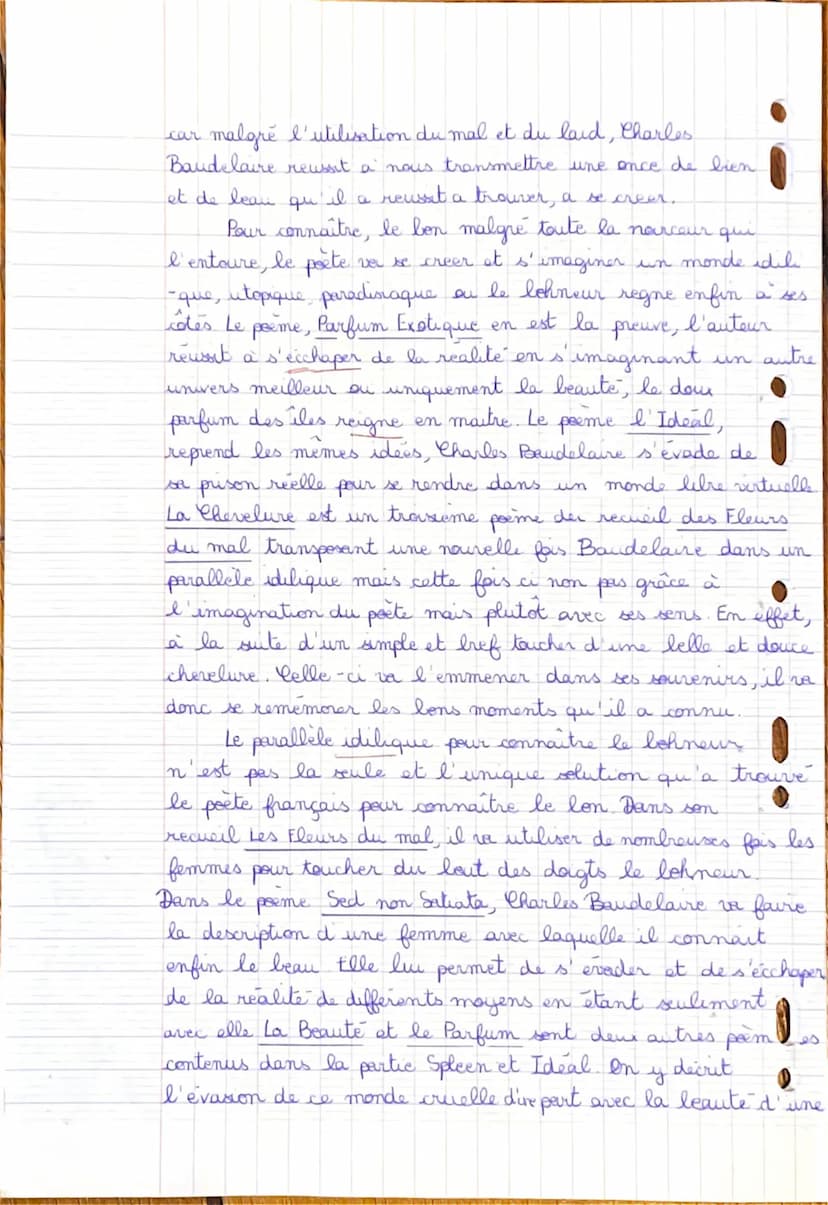 car malgré l'utilisation du mal et du laid, Charles
Baudelaire reussit a nous transmettre une once de bien
et de beau qu'il a reussit a trouver, a se creer.
Pour connaître, le bon malgré toute la noirceur qui
l'entoure, le poète va se creer et s'imaginer un monde idili
-que, utopique, paradisiaque ou le bohneur regne enfin à ses
côtés Le poème, Parfum Exotique en est la preuve, l'auteur
réussit à s'écchaper de la realité en s'imaginant un autre
univers meilleur ou uniquement la beauté, le doux
parfum des îles reigne en maitre. Le poème l'Idéal,
reprend les mêmes idées, Charles Baudelaire s'évade de
sa prison réelle pour se rendre dans un monde libre virtuelle
La Chevelure est un troisième poème du recueil des Fleurs
du mal transposant une nouvelle fois Baudelaire dans un
parallèle idilique mais cette fois ci non pas grâce à
l'imagination du poète mais plutôt avec ses sens. En effet,
à la suite d'un simple et bref toucher d'une belle et douce
chevelure. Celle-ci va l'emmener dans ses souvenirs, il va
donc se remémorer les bons moments qu'il a connu.
Le parallèle idilique pour connaître le bohneur,
n'est pas la seule et l'unique solution qu'a trouvé
le poète français pour connaître le bon. Dans son
recueil Les Fleurs du mal, il va utiliser de nombreuses fois les
femmes pour toucher du bout des doigts le bohneur.
Dans le poème Sed non Satiata, Charles Baudelaire va faire
la description d'une femme avec laquelle il connait
enfin le beau Elle lui permet de s'évader et de s'écchaper
de la réalité de différents moyens en étant seuliment
avec elle La Beauté et le Parfum sont deux autres poèm es
contenus dans la partie Spleen et Idéal. On y décrit
l'évasion de ce monde cruelle d'une part avec la beauté d'une